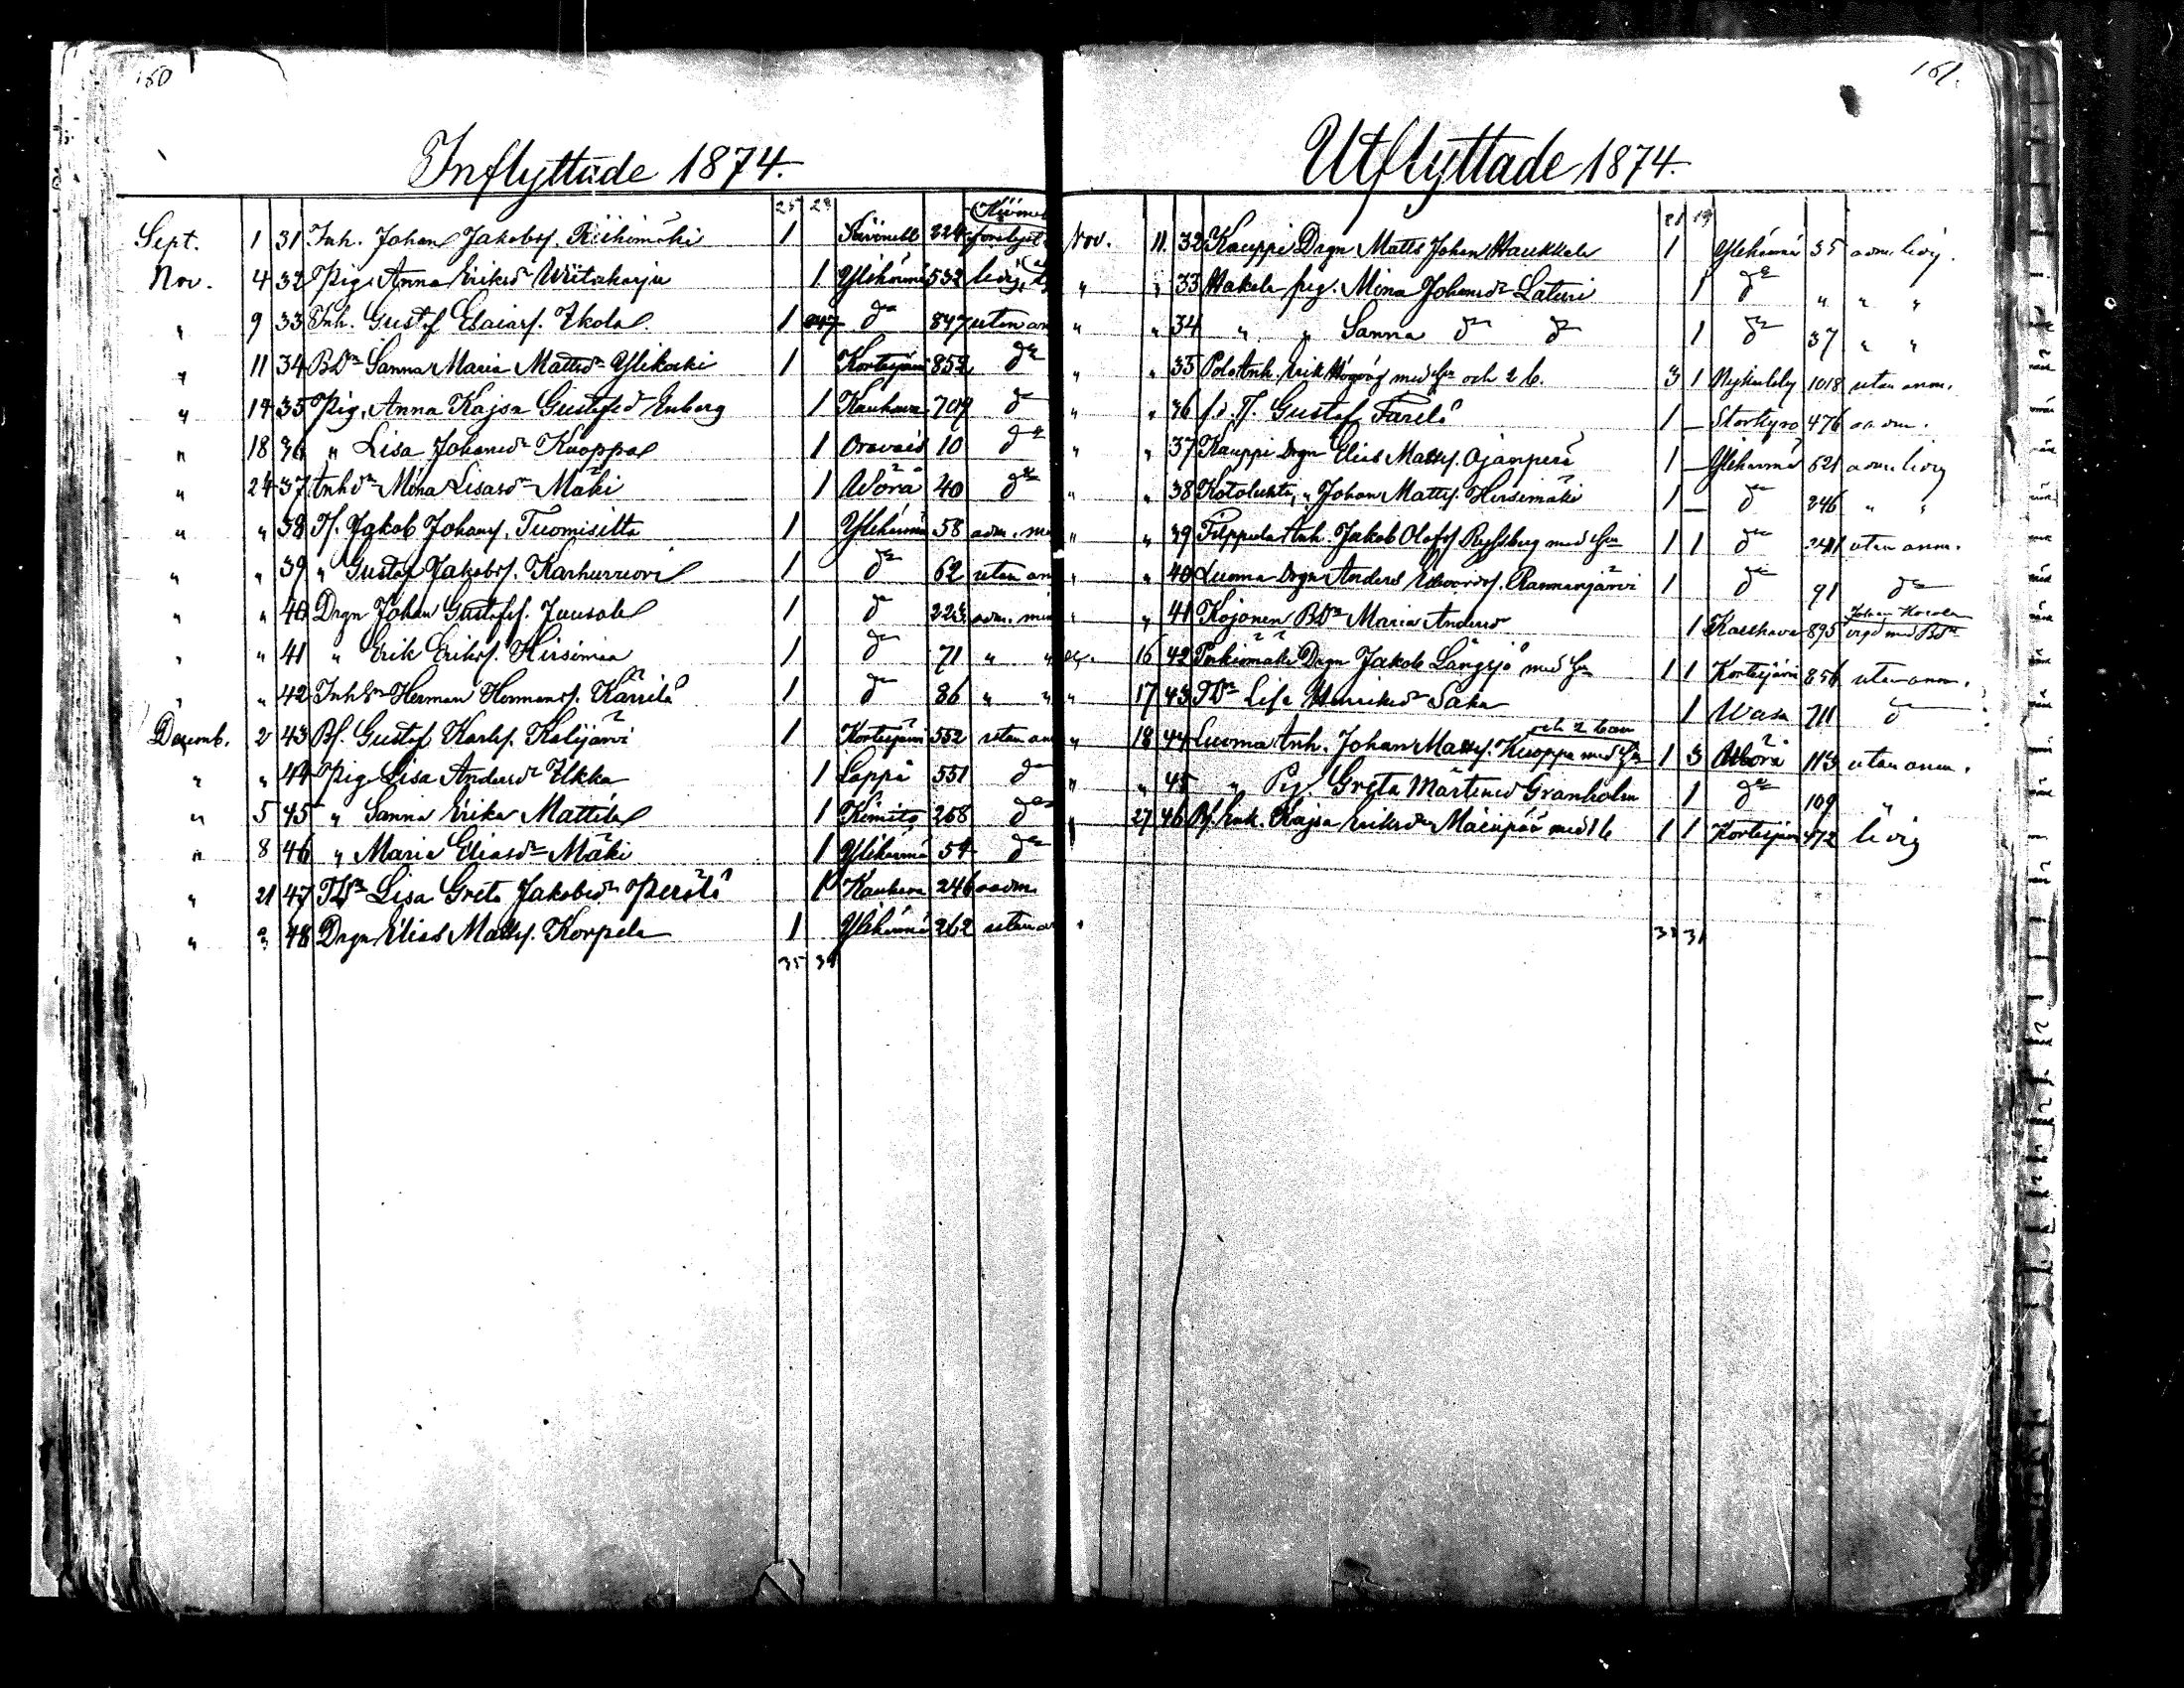 160
Inflyttade 1874.
25 28
Sept. 1 31 Inh. Johan Jakobsf. Riihimäki 1 224
Nov. 4 32 Pig. Anna Eriksdr Wiitaharju 1 Ylihärmä 532 ledig
" 9 33 Inh. Gustaf Esaiasf. Ikola 1 do 847 utan an
" 11 34 BDr Sanna Maria Mattsdr Ylikoski 1 Kortesjärvi 852 do
" 14 35 Pig. Anna Kajsa Gustafsd Enberg 1 Kauhava 709 do
" 18 36 " Lisa Johansdr Kuoppa 1 Oravais 10 do
" 24 37 Inhdr Mina Lisasdr Mäki 1 Wörå 40 do
" " 38 Tf. Jakob Johansf. Tuomisilta 1 Ylihärmä 58 adm.
" " 39 " Gustaf Jakobsf. Karhuvuori 1 do 62 utan an
" " 40 Drgn Johan Gustafsf. Juusola 1 do 223 adm.
" " 41 " Erik Eriksf. Hirsimaa 1 do 71 " "
" " 42 Herman Hermansf. Kärilä 1 do 86 " "
Dezemb. 2 43 Bf. Gustaf Karlsf. Kalijärvi 1 Kortesjärvi 552 utan an
" " 44 Pig Lisa Andersdr Ilkka 1 Lappå 551 do
" 5 45 " Sanna Erika Mattila 1 Kimito 268 do
" 8 46 " Maria Eliasdr Mäki 1 Ylihärmä 54 do
" 21 47 TDr Lisa Greta Jakobsdr Perälä 1 Kauhava 246 oadm.
" " 48 Drgn Elias Mattsf. Korpela 1 Ylihärmä 262 utan a
35 31
161.
Utflyttade 1874.
21 19
Nov. 11. 32 Kauppi Drgn Matts Johan Haukkala 1 Ylihärmä 35 adm. ledig.
" " 33 Hakala pig. Mina Johansdr Laturi 1 do " " "
" " 34 " " Sanna do do 1 do 37 " "
" " 35 Inh. Erik med hu och 2 b. 3 1 Nykarleby 1018 utan anm.
" " 36 Gustaf Farilä 1 Storkyro 476 oadm.
" " 37 Kauppi Drgn Elias Mattsf. Ojanperä 1 Ylihärmä 621 adm. ledig
" " 38 Kotoluhta, " Johan Mattsf. Hirsimäki 1 do 246 " "
" " 39 Filppula Inh. Jakob Olofsf Ryssberg med hu 1 1 do 241 utan anm.
" " 40 Luoma Drgn Anders Edvardsf. Rasmanjärvi 1 do 91 do
" " 41 Kojonen BDr Maria Andersd 1 Kauhava 895
" 16 42 Perkiömäki Drgn Jakob Långsjö med hu 1 1 Kortesjärvi 856 utan anm.
" 17 43 TDr Lisa Henriksdr Saka 1 Wasa 711 do
och 2 barn
" 18 44 Luoma Inh. Johan Mattsf. Kuoppa med hu 1 3 Wörå 113 utan anm.
" " 45 " Pig. Greta Mårtensd Granholm 1 do 109 "
" 27 46 Bf. Enk. Kajsa Eriksdr Mäenpää med 1 b 1 1 Kortesjärvi 472 ledig
31